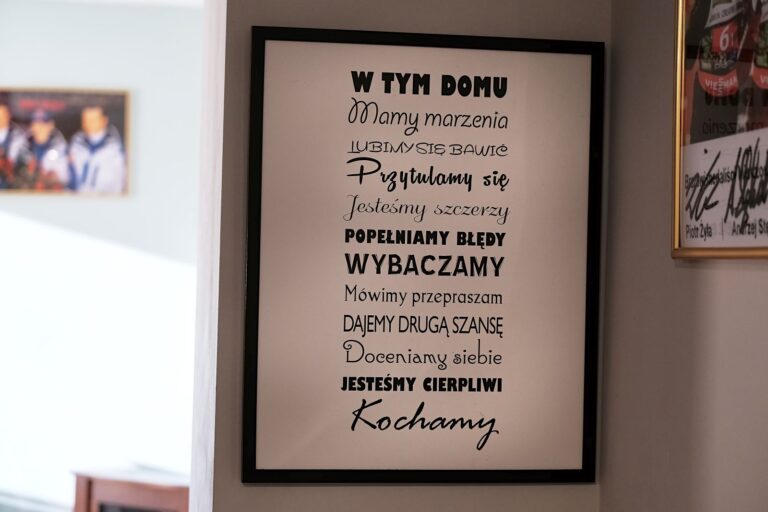 W TYM DOMU
Mamy marzenia
LUBIMY SIĘ BAWIĆ
Przytulamy się
Jesteśmy szczerzy
POPEŁNIAMY BŁĘDY
WYBACZAMY
Mówimy przepraszam
DAJEMY DRUGĄ SZANSĘ
Doceniamy siebie
JESTEŚMY CIERPLIWI
Kochamy
6
VIESSMAN
Piotr Żyła Andrzej